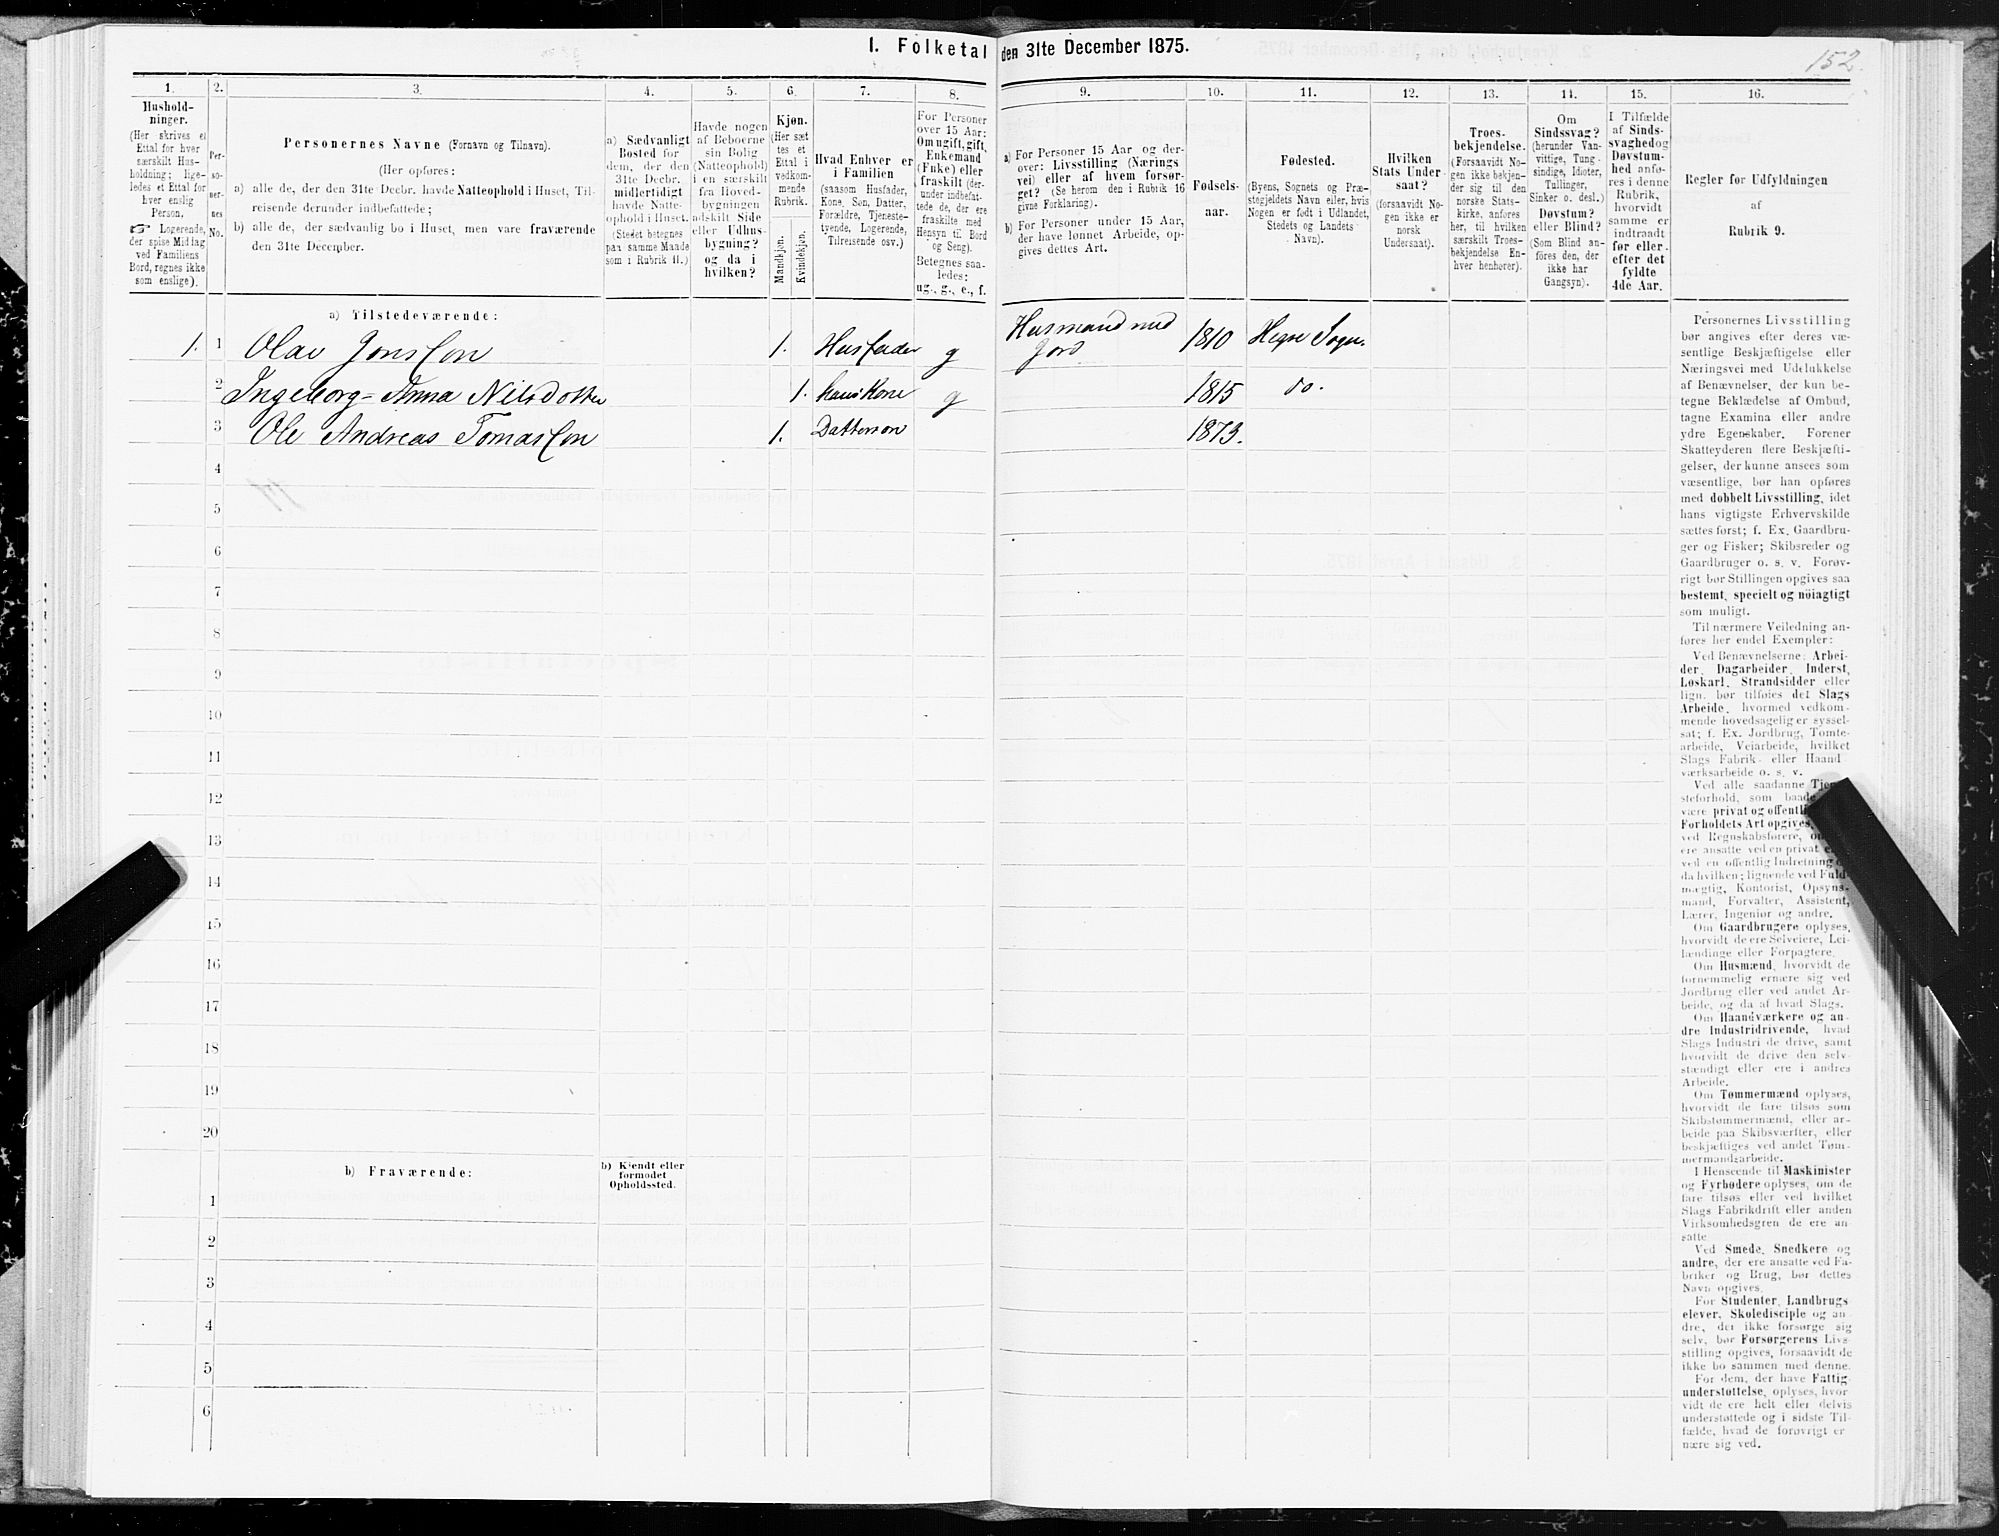 I. Folketal den 31te December 1875.
152.
1.
Hushold-
ninger.
(Her skrives et
Ettal for hver
særskilt Hus-
holdning; lige-
ledes et Ettal for
hver enslig
Person.
☞ Logerende,
der spise Middag
ved Familiens
Bord, regnes ikke
som enslige).
2.
Per-
so-
ner-
nes
No.
3.
Personernes Navne (Fornavn og Tilnavn).
(Her opføres:
a) alle de, der den 31te Decbr. havde Natteophold i Huset, Til-
reisende derunder indbefattede;
b) alle de, der sædvanlig bo i Huset, men vare fraværende
den 31te December.
4.
a) Sædvanligt
Bosted for
dem, der den
31te Decbr.
midlertidigt
havde Natte-
ophold i Huset.
(Stedet betegnes
paa samme Maade
som i Rubrik 11.)
5.
Havde nogen
af Beboerne
sin Bolig
(Natteophold)
i en særskilt
fra Hoved-
bygningen
adskilt Side
eller Udhus-
bygning?
og da i
hvilken?
6.
Kjøn.
(Her sæt
tes et
Ettal i
vedkom-
mende
Rubrik.
Mandkjøn.
Kvindekjøn.
7.
Hvad Enhver er
i Familien
(saasom Husfader,
Kone, Søn, Datter,
Forældre, Tjeneste-
tyende, Logerende,
Tilreisende osv.)
8.
For Personer
over 15 Aar:
Om ugift, gift,
Enkemand
(Enke) eller
fraskilt (der-
under indbefat-
tede de, der ere
fraskilte med
Hensyn til Bord
og Seng).
Betegnes saa-
ledes:
ug., g., e., f.
9.
a) For Personer 15 Aar og der-
over: Livsstilling (Nærings
vei) eller af hvem forsør-
get? (Se herom den i Rubrik 16
givne Forklaring).
b) For Personer under 15 Aar,
der have lønnet Arbeide, op-
gives dettes Art.
10.
Fødsels-
aar.
11.
Fødested.
(Byens, Sognets og Præ-
stegjeldets Navn eller, hvis
Nogen er født i Udlandet,
Stedets og Landets
Navn).
12.
Hvilken
Stats Under
saat?
(forsaavidt No-
gen ikke er
norsk
Undersaat).
13.
Troes-
bekjendelse.
(Forsaavidt No-
gen ikke bekjen-
der sig til den
norske Stats-
kirke, anføres
her, til hvilken
særskilt Troes-
bekjendelse En-
hver henhører).
14.
Om
Sindssvag?
(herunder Van-
vittige, Tung-
sindige, Idioter,
Tullinger,
Sinker o. desl.)
Døvstum?
eller Blind?
(Som Blind an-
føres den, der
ikke har
Gangsyn).
15.
I Tilfælde
af Sinds-
svaghed og
Døvstum-
hed anfø-
res i denne
Rubrik,
hvorvidt
samme er
indtraadt
før eller
efter det
fyldte
4de Aar.
16.
Regler for Udfyldningen
af
Rubrik 9.
a) Tilstedeværende:
1. 1 Olav Jonsson 1. Husfader g Husmand med Jord 1810 Hegre Sogn.
2 Ingeborg-Anna Nilsdotter 1. hans Kone g 1815 do.
3 Ole Andreas Tomasson 1. Datterson 1873.
4
5
6
7
8
9
10
11
12
13
14
15
16
17
18
19
20
b) Fraværende:
b) Kjendt eller
formodet
Opholdssted.
1
2
3
4
5
6
Personernes Livsstilling
bør angives efter deres væ-
sentlige Beskjæftigelse eller
Næringsvei med Udelukkelse
af Benævnelser, der kun be-
tegne Beklædelse af Ombud,
tagne Examina eller andre
ydre Egenskaber. Forener
Skatteyderen flere Beskjæfti-
gelser, der kunne ansees som
væsentlige, bør han opføres
med dobbelt Livsstilling, idet
hans vigtigste Erhvervskilde
sættes først; f. Ex. Gaardbru-
ger og Fisker; Skibsreder og
Gaardbruger o. s. v. Forøv-
rigt bør Stillingen opgives saa
bestemt, specielt og nøiagtigt
som muligt.
Til nærmere Veiledning an-
føres her endel Exempler:
Ved Benævnelserne: Arbei-
der, Dagarbeider, Inderst,
Løskarl, Strandsidder eller
lign. bør tilføies det Slags
Arbeide, hvormed vedkom-
mende hovedsagelig er syssel-
sat; f. Ex. Jordbrug, Tomte-
arbeide, Veiarbeide, hvilket
Slags Fabrik- eller Haand
værksarbeide o. s. v.
Ved alle saadanne
steforhold, som
være privat og
Forholdets Art opgives,
ved Regnskabsførere,
ere ansatte ved en privat
ved en offentlig Indretning
da hvilken; lignende ved Fuld-
mægtig, Kontorist, Opsyns-
mand, Forvalter, Assistent,
Lærer, Ingeniør og andre.
Om Gaardbrugere oplyses,
hvorvidt de ere Selveiere, Lei-
lændinge eller Forpagtere.
Om Husmænd, hvorvidt de
fornemmelig ernære sig ved
Jordbrug eller ved andet Ar-
beide, og da af hvad Slags.
Om Haandværkere og an-
dre Industridrivende, hvad
Slags Industri de drive, samt
hvorvidt de drive den selv-
stændigt eller ere i andres
Arbeide.
Om Tømmermænd oplyses,
hvorvidt de fare tilsøs som
Skibstømmermænd, eller ar-
beide paa Skibsværfter, eller
beskjæftiges ved andet Tøm-
mermandsarbeide.
I Henseende til Maskinister
og Fyrbødere oplyses, om de
fare tilsøs eller ved hvilket
Slags Fabrikdrift eller anden
Virksomhedsgren de ere an-
satte
Ved Smede, Snedkere og
andre, der ere ansatte ved Fa-
briker og Brug, bør dettes
Navn opgives.
For Studenter, Landbrugs
elever, Skoledisciple og an-
dre, der ikke forsørge sig
selv, bør Forsørgerens Livs-
stilling opgives, forsaavidt de
ikke bo sammen med denne.
For dem, der have Fattig-
understøttelse, oplyses, hvor
vidt de ere helt eller delvis
understøttede og i sidste Til-
fælde, hvad de forøvrigt er
nære sig ved.